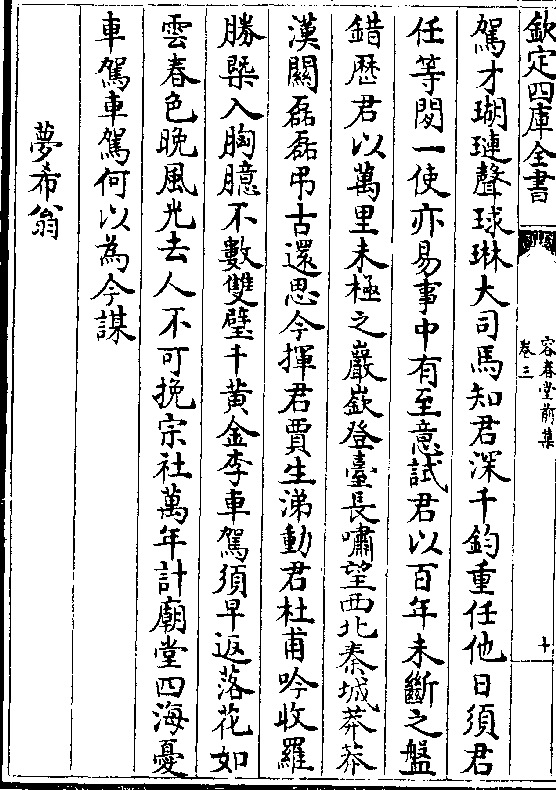 欽定四庫全書
容春堂前集
卷三
十
駕才瑚璉聲球琳大司馬知君深千鈞重任他日須君
任等閔一使亦易事中有至意試君以百年未斷之盤
錯歷君以萬里未極之巖嶔登臺長嘯望西北秦城莽莽
漢關磊磊弔古還思今揮君賈生涕動君杜甫吟收羅
勝槩入胸臆不數雙璧千黃金李車駕須早返落花如
雲春色晚風光去人不可挽宗社萬年計廟堂四海憂
車駕車駕何以為今謀
夢希翁